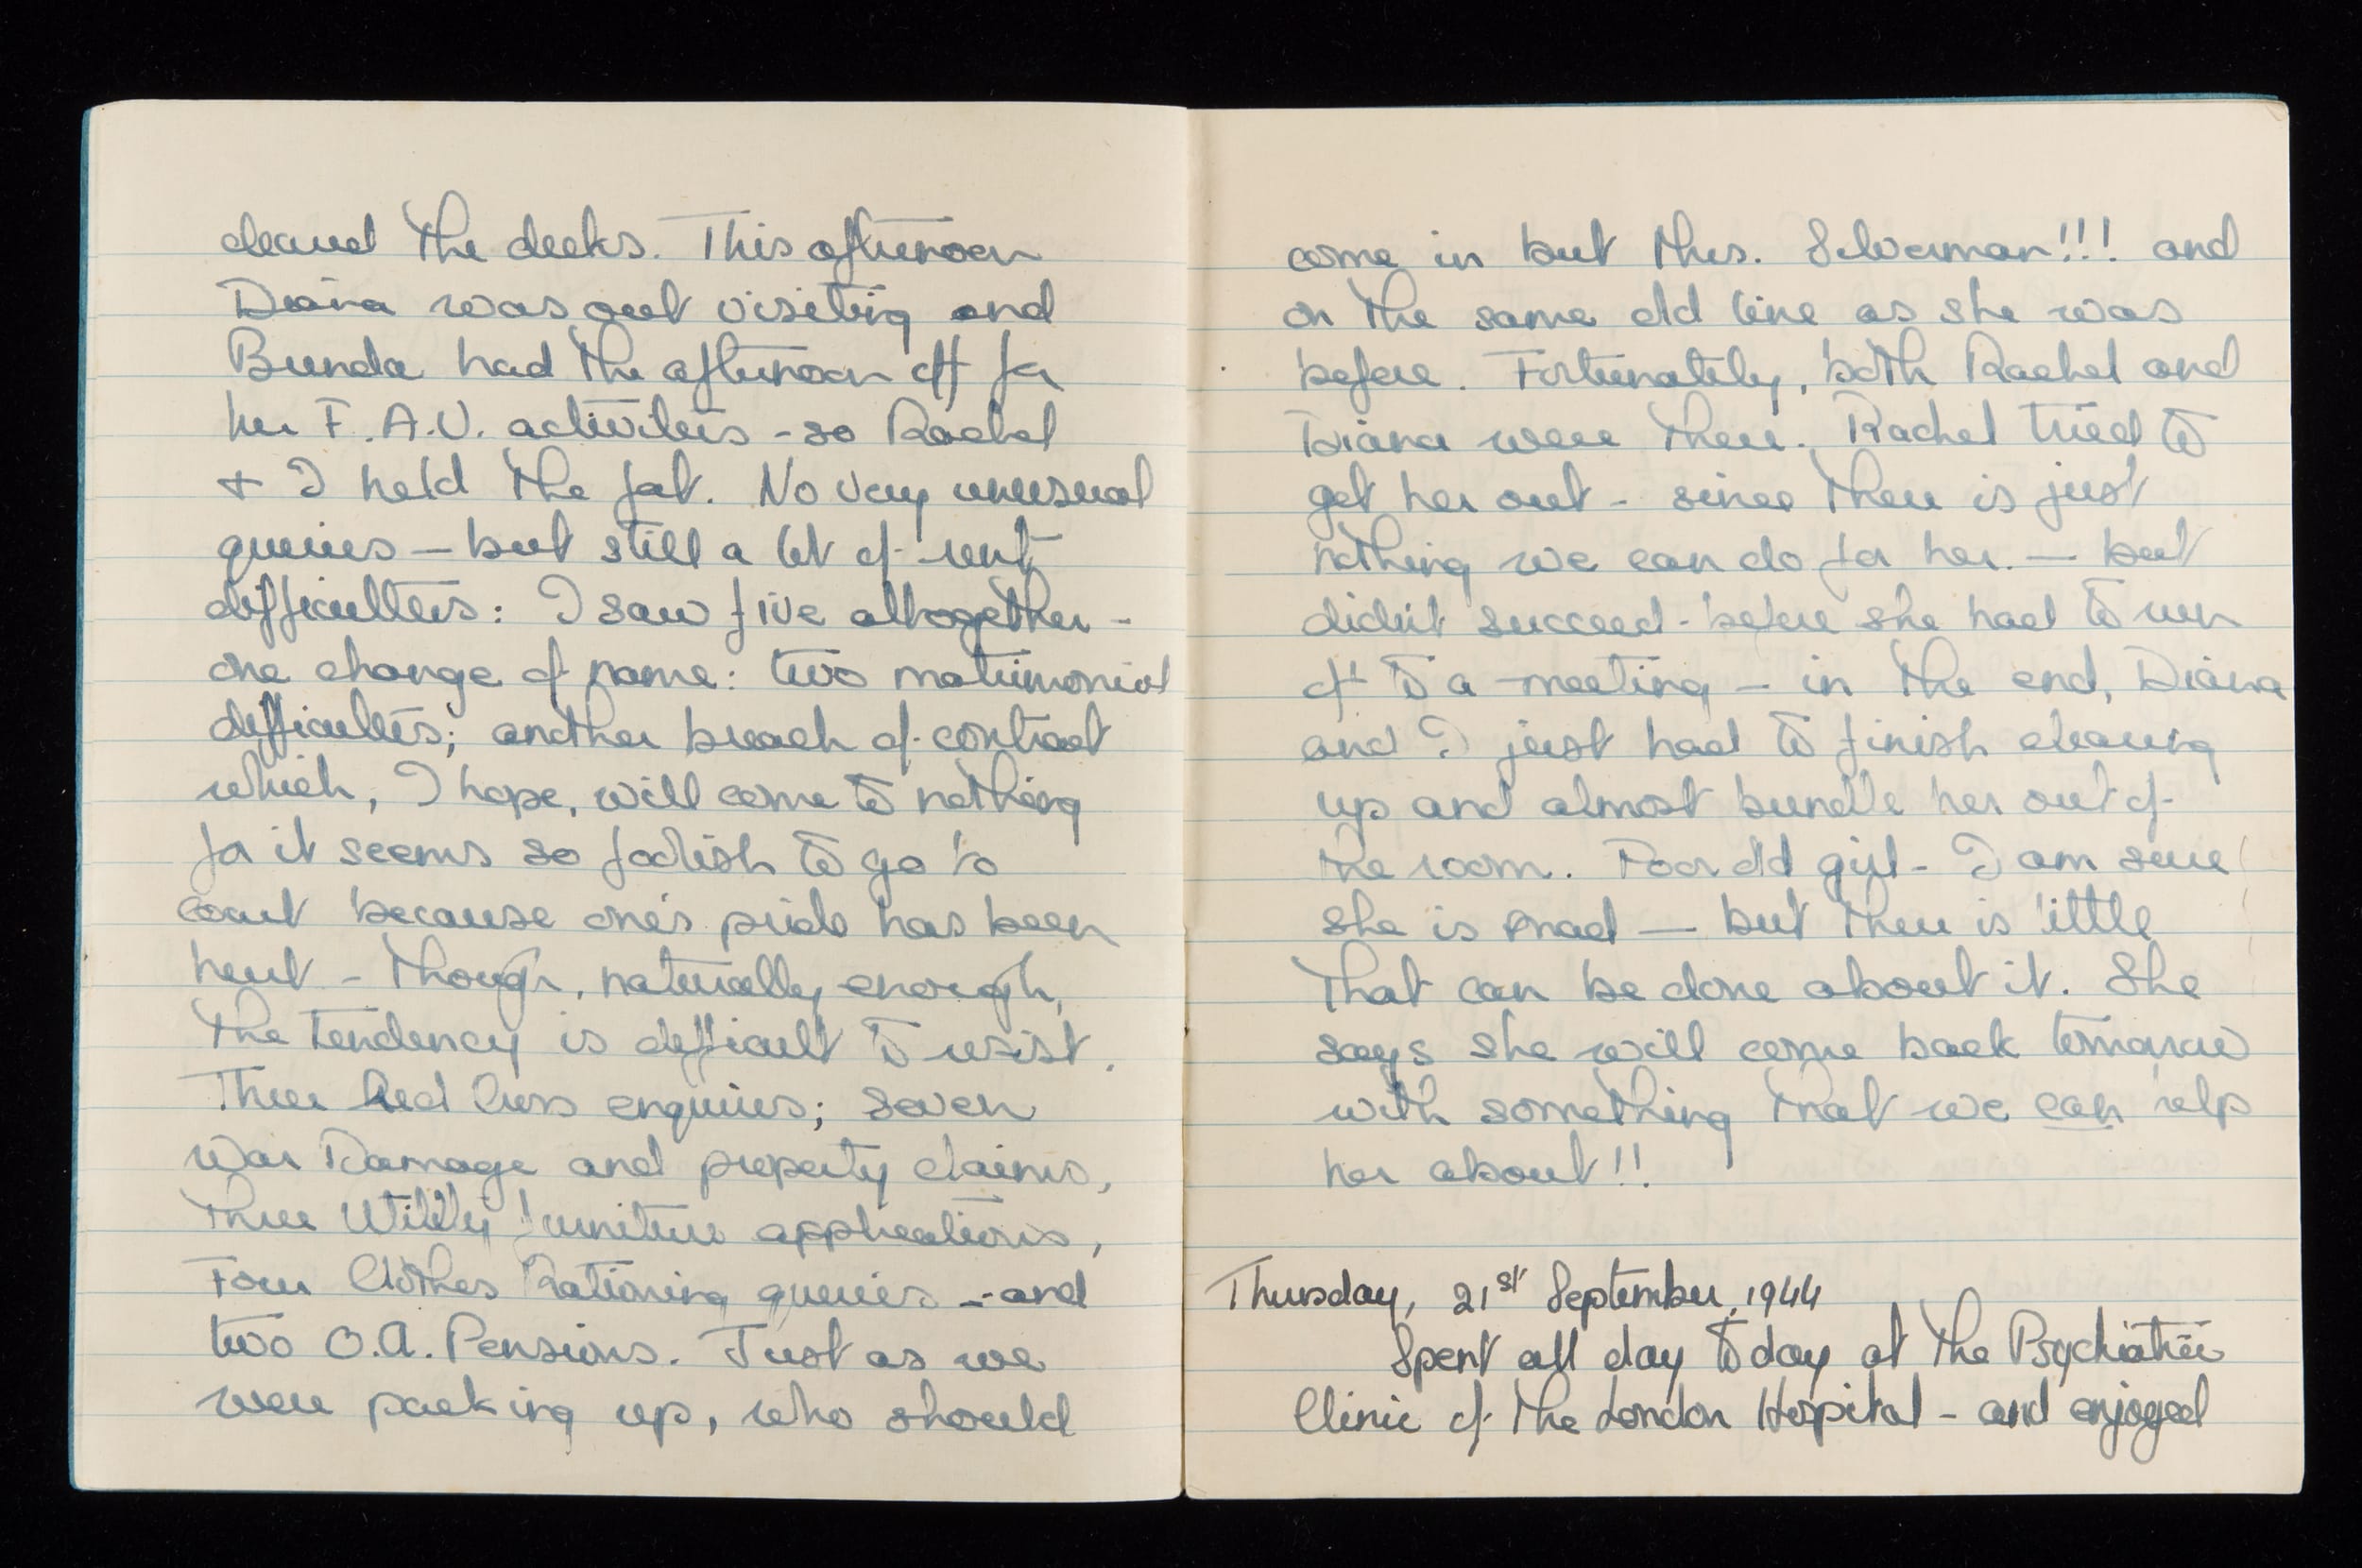 cleared the decks. This afternoon
Diana was out visiting and
Brenda had the afternoon off for
her F.A.U. activities - so Rachel
+ I held the fort. No very unusual
queries — but still a lot of rent
difficulties: I saw five altogether -
one change of name: two matrimonial
difficulties; another breach of contract
which, I hope, will come to nothing
for it seems so foolish to go to
court because one's pride has been
hurt - though, naturally enough,
the tendency is difficult to resist.
Three Red Cross enquiries; seven
War Damage and property claims,
three Utility furniture applications,
Four Clothes Rationing queries - and
two O.A. Pensions. Just as we
were packing up, who should
come in but Mrs. Silverman!!! and
on the same old line as she was
before. Fortunately, both Rachel and
Diana were there. Rachel tried to
get her out - since there is just
nothing we can do for her. — but
didn't succeed - before she had to run
off to a meeting - in the end, Diana
and I just had to finish clearing
up and almost bundle her out of
the room. Poor old girl - I am sure
she is mad — but there is little
that can be done about it. She
says she will come back tomorrow
with something that we can help
her about!!
Thursday, 21st September, 1944
Spent all day today at the Psychiatric
Clinic of the London Hospital - and enjoyed